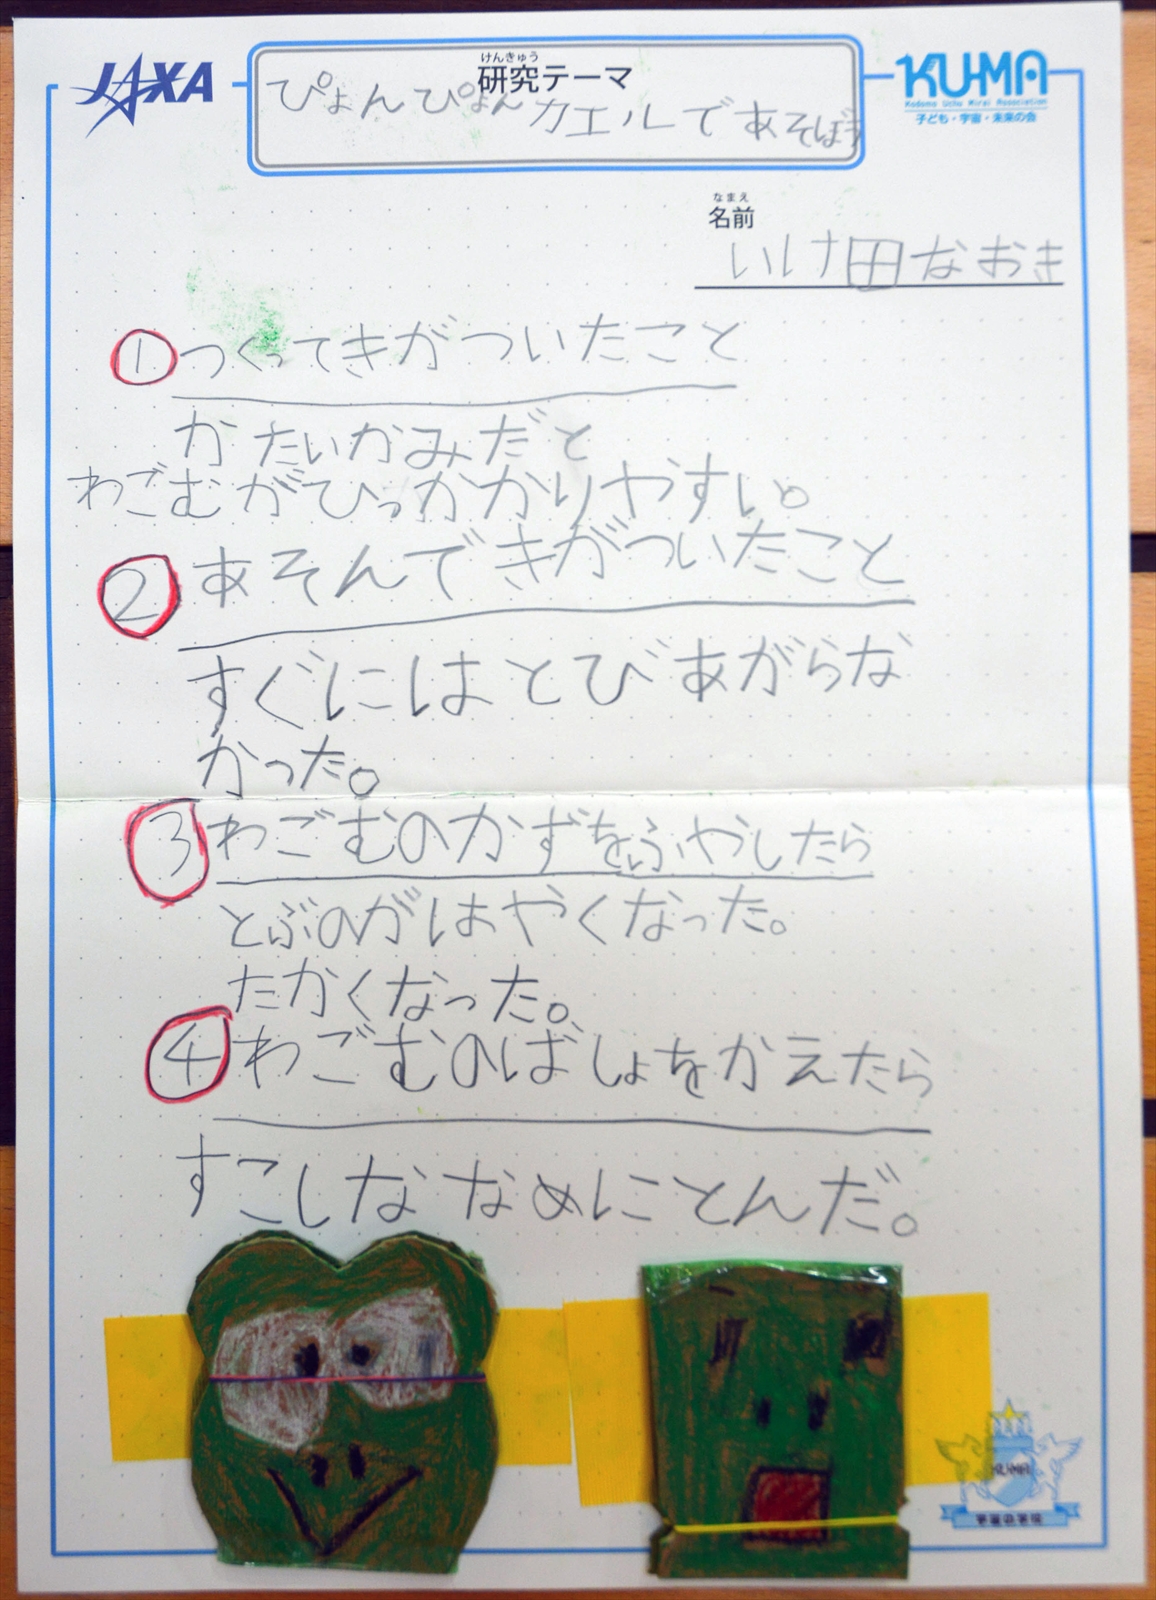 JAXA
けんきゅう
研究テーマ
ぴょんぴょんカエルであそぼう
KU-MA
Kodomo Uchu Mirai Association
子ども・宇宙・未来の会
なまえ
名前
いけ田なおき
① つくってきがついたこと
かたいかみだと
わごむがひっかかりやすい。
② あそんできがついたこと
すぐにはとびあがらな
かった。
③ わごむのかずをふやしたら
とぶのがはやくなった。
たかくなった。
④ わごむのばしょをかえたら
すこしななめにとんだ。
KU-MA
宇宙の学校